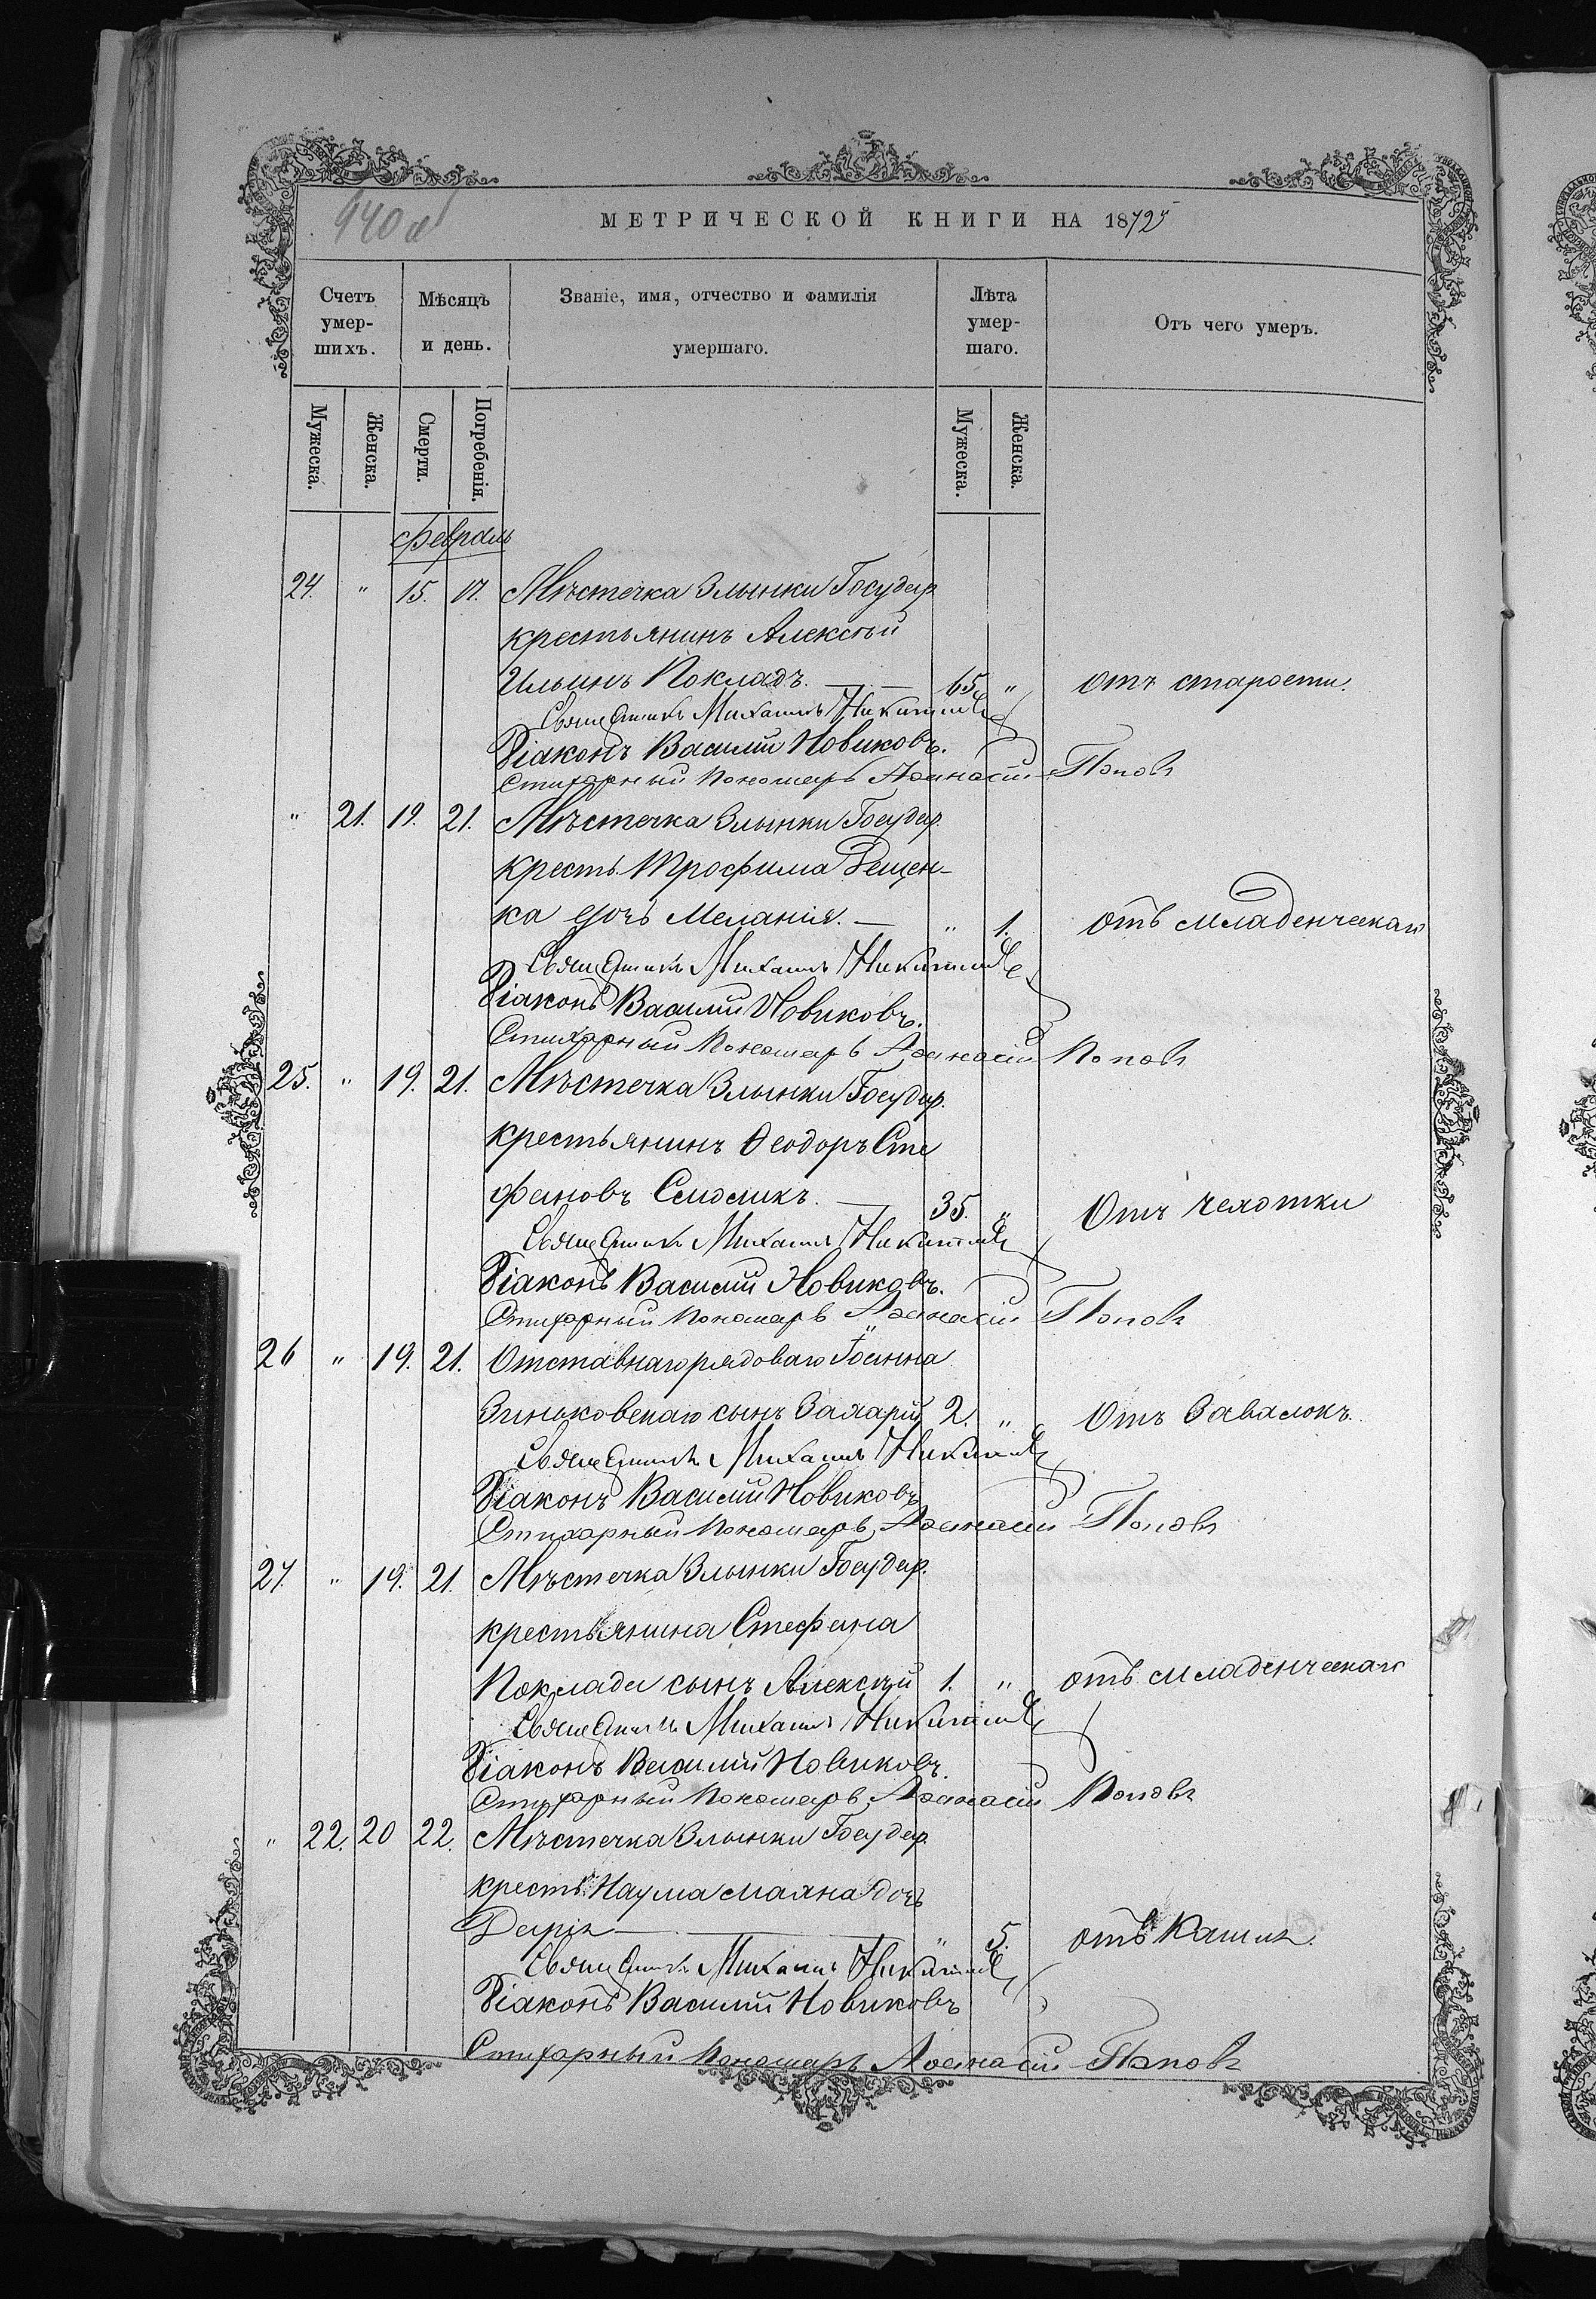 940 об
МЕТРИЧЕСКОЙ КНИГИ НА 1872
Счетъ умер-шихъ. Мѣсяцъ и день. Званіе, имя, отчество и фамилія умершаго. Лѣта умер-шаго. Отъ чего умеръ.
Мужеска. Женска. Смерти. Погребенія. Мужеска. Женска.
февраль
24. " 15. 17. Мѣстечка Злынки Государ
крестьянинъ Алексѣй
Ильинъ Покладъ. — 65. " отъ старости.
Священникъ Михаилъ Никитинъ
Діаконъ Василій Новиковъ.
Стихарный Пономарь Аѳанасій Поповъ
" 21. 19. 21. Мѣстечка Злынки Государ.
крестъ. Трофима Рещен-
ка дочь Меланія. — " 1. отъ младенческаго
Священникъ Михаилъ Никитинъ
Діаконъ Василій Новиковъ.
Стихарный Пономарь Аѳанасій Поповъ
25. " 19. 21. Мѣстечка Злынки Государ.
крестьянинъ Ѳеодоръ Сте
фановъ — 35. " Отъ чехотки
Священникъ Михаилъ Никитинъ
Діаконъ Василій Новиковъ.
Стихарный Пономарь Аѳанасій Поповъ
26 " 19. 21. Отставнаго рядоваго Іоанна
Зиньковскаго сынъ Захарій 2. " Отъ Завалокъ.
Священникъ Михаилъ Никитинъ
Діаконъ Василій Новиковъ
Стихарный Пономарь Аѳанасій Поповъ
27. " 19. 21. Мѣстечка Злынки Государ.
крестьянина Стефана
Поклада сынъ Алексѣй 1. " отъ младенческаго
Священникъ Михаилъ Никитинъ
Діаконъ Василій Новиковъ.
Стихарный Пономарь Аѳанасій Поповъ
" 22. 20 22. Мѣстечка Злынки Государ
крестъ. Наума дочь
Дарія — " 5. отъ Кашля.
Священникъ Михаилъ Никитинъ
Діаконъ Василій Новиковъ
Стихарный Пономарь Аѳанасій Поповъ